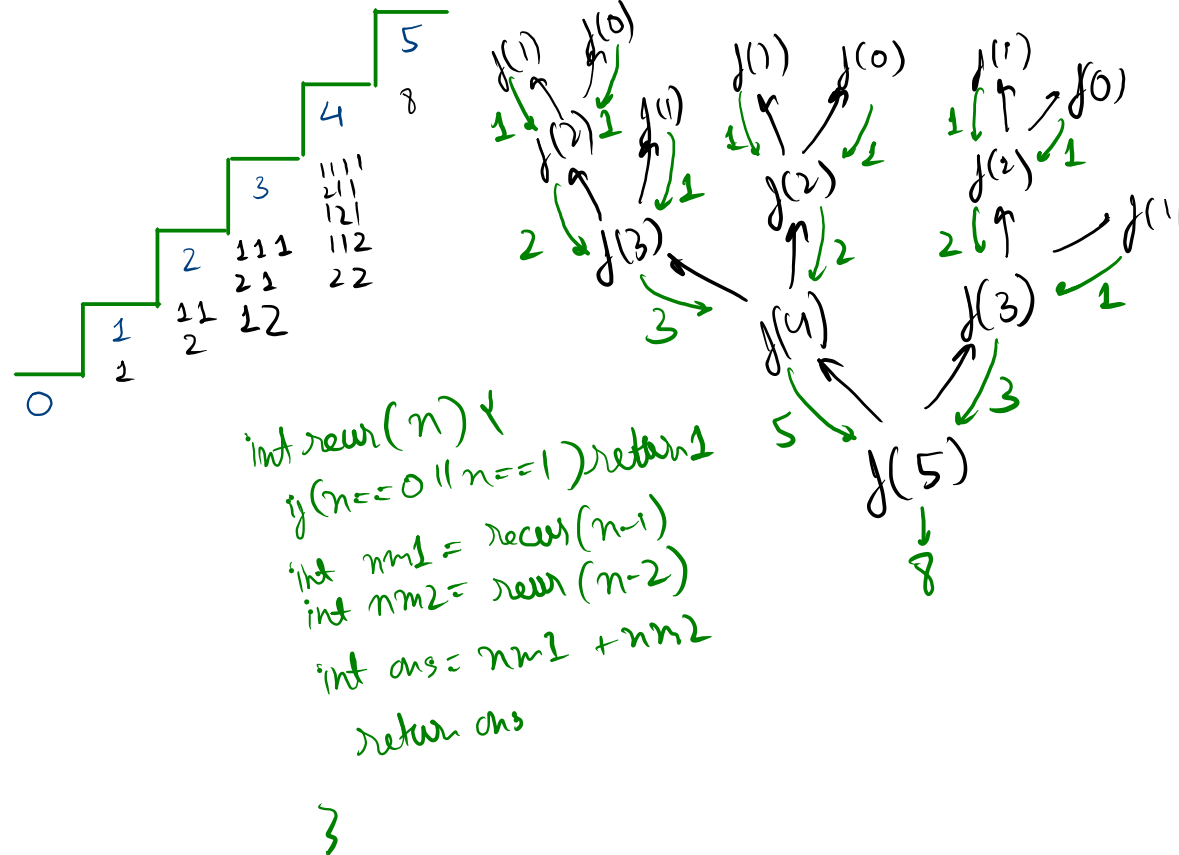 5
8
4
1111
211
121
112
22
3
111
21
12
2
11
2
1
1
0
f(1) f(0) f(1) f(0) f(1) f(0)
1 1 1 1 1 1
f(2) f(1) f(2) f(2)
2 1 2 2 f(1
f(3) 1
3 f(4) f(3)
5 3
f(5)
8
int recur(n) {
if(n==0 || n==1) return 1
int nm1 = recur(n-1)
int nm2 = recur(n-2)
int ans = nm1 + nm2
return ans
}